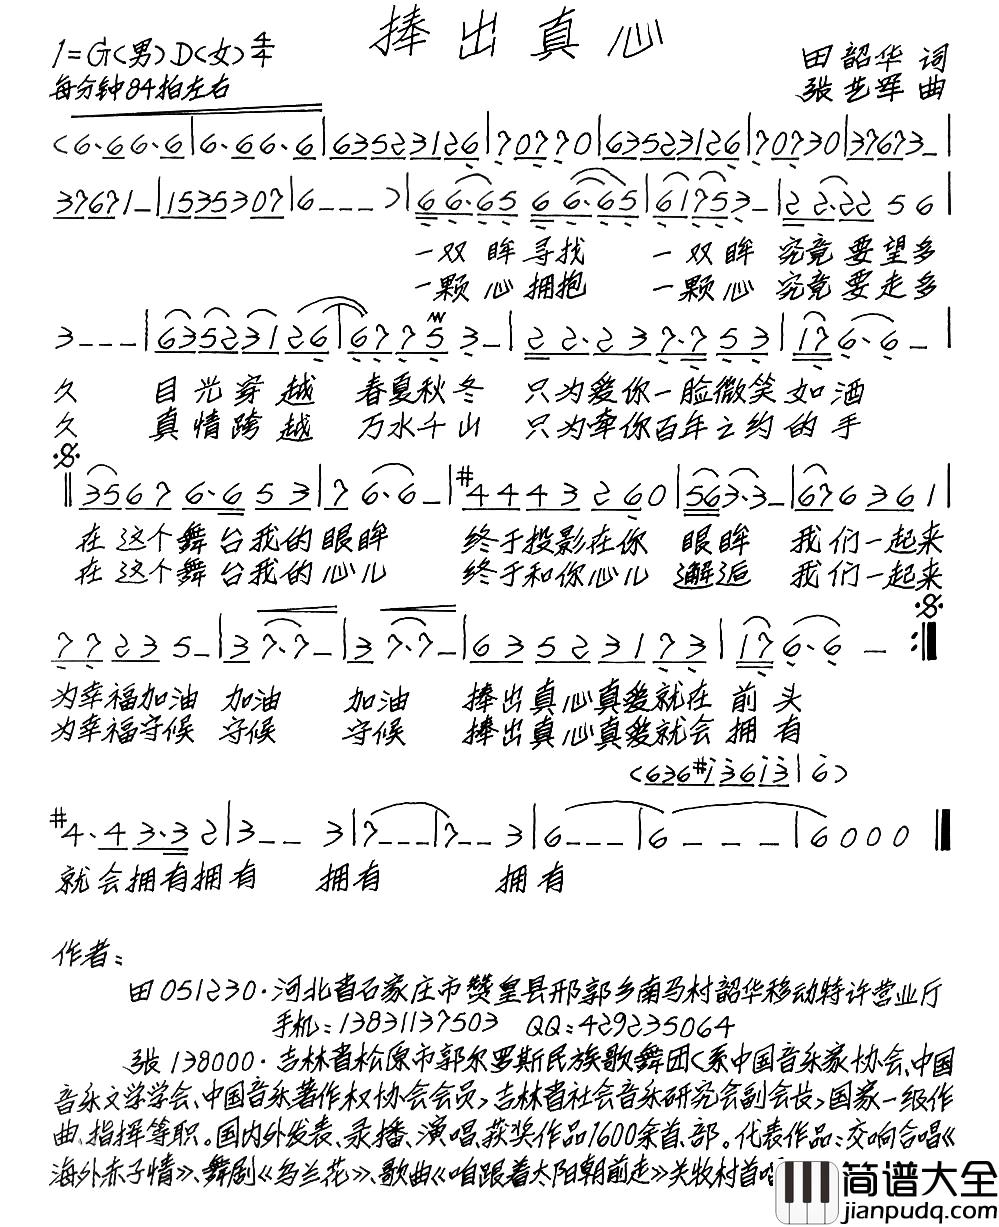 捧出真心
1=G(男) D(女) 4/4
田韶华 词
每分钟84拍左右
张艺军 曲
(6·666·6|6·666·6|63523126|70770|63523126|707030|376763_|
376761_|15353070|6___)|66·6566·65|61753_|22·2256|
一双眸寻找 一双眸 究竟要望多
一颗心拥抱 一颗心 究竟要走多
3___|63523126|67753_|22·237·753|176·6_|
久 目光穿越 春夏秋冬 只为爱你一脸微笑如酒
久 真情跨越 万水千山 只为牵你百年之约的手
‖35676·653|76·6_|#4443260|563·3_|676361|
在这个舞台我的眼眸 终于投影在你 眼眸 我们一起来
在这个舞台我的心儿 终于和你心儿 邂逅 我们一起来
77235_|37·7_|37·7_|63523173|176·6_:‖
为幸福加油 加油 加油 捧出真心真爱就在 前头
为幸福守候 守候 守候 捧出真心真爱就会 拥有
(636#i36i3|6)
#4·43·32|3__3|7___|7__3|6___|6___|6000‖
就会拥有拥有 拥有 拥有
作者:
田 051230·河北省石家庄市赞皇县邢郭乡南马村韶华移动特许营业厅
手机:13831137503 QQ:429235064
张 138000·吉林省松原市郭尔罗斯民族歌舞团(系中国音乐家协会、中国
音乐文学学会、中国音乐著作权协会会员,吉林省社会音乐研究会副会长,国家一级作
曲、指挥等职。国内外发表、录播、演唱、获奖作品1600余首、部。代表作品:交响合唱《
海外赤子情》、舞剧《乌兰花》、歌曲《咱跟着太阳朝前走》关牧村首唱
简谱大全
jianpudq.com